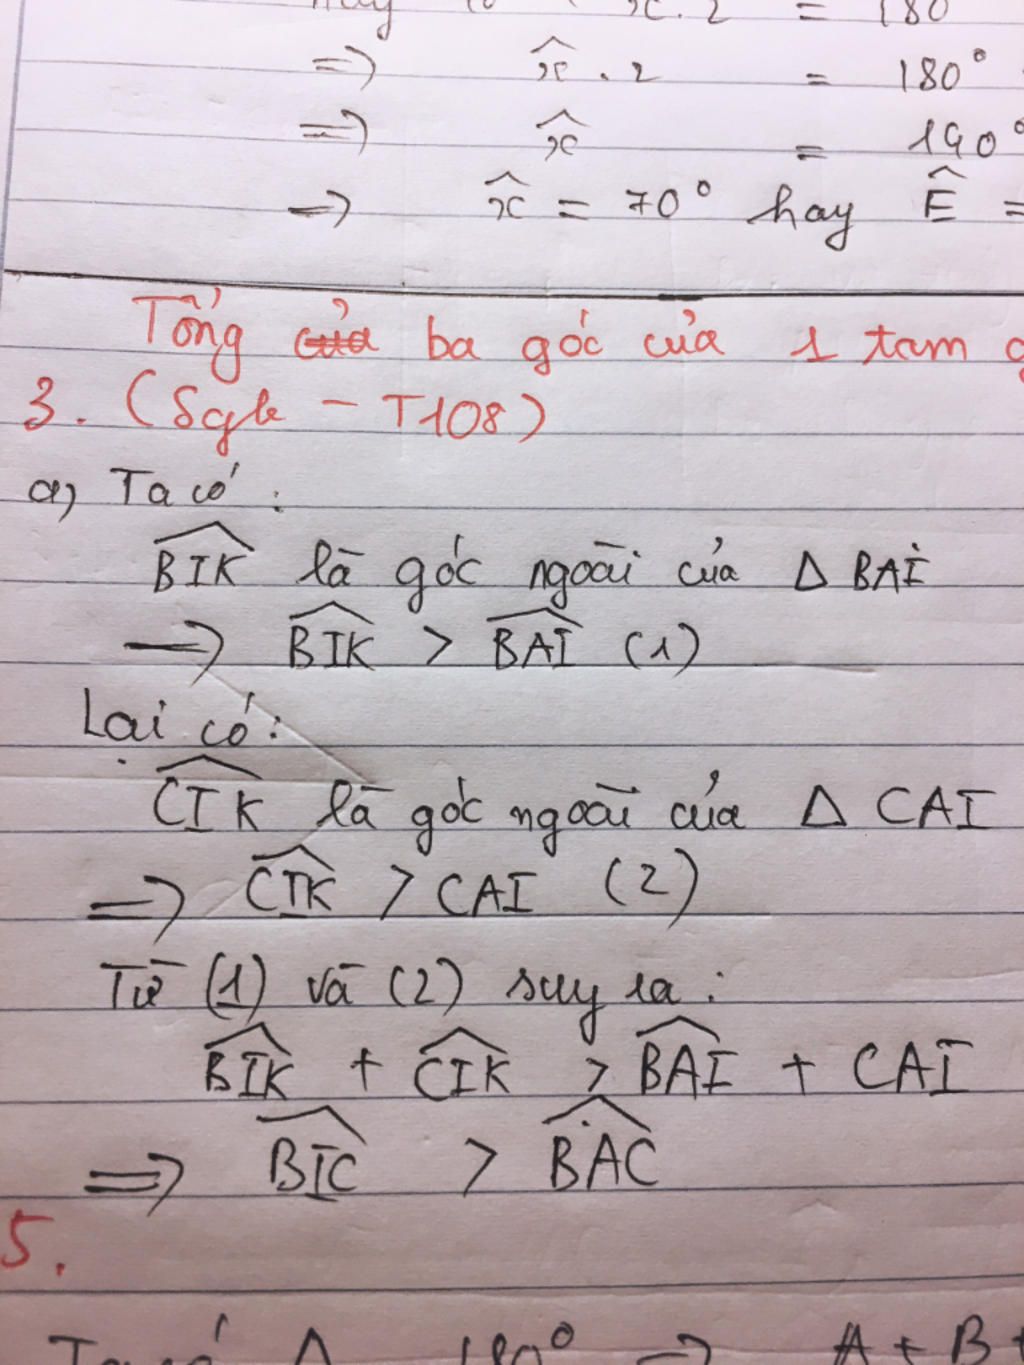 x̂ . 2 = 180
=> x̂ . 2 = 180°
=> x̂ = 140°
=> x̂ = 70° hay Ê =
Tổng của ba góc của 1 tam g
3. (Sgk - T108)
a) Ta có :
BIK là góc ngoài của Δ BAI
=> BIK > BAI (1)
Lại có :
CIK là góc ngoài của Δ CAI
=> CIK > CAI (2)
Từ (1) và (2) suy ra :
BIK + CIK > BAI + CAI
=> BIC > BAC
5.
Ta có Δ 180° => A + B +